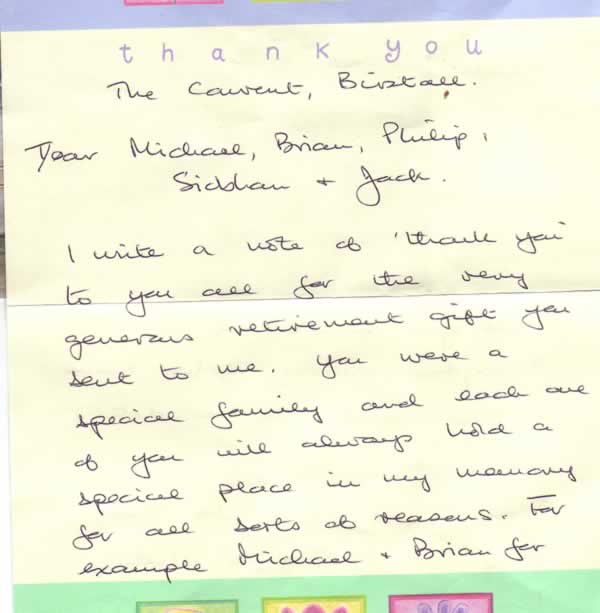 thank you
The Convent, Birstall.
Dear Michael, Brian, Philip,
Siobhan + Jack.
I write a note of 'thank you'
to you all for the very
generous retirement gift you
sent to me. You were a
special family and each one
of you will always hold a
special place in my memory
for all sorts of reasons. For
example Michael + Brian for